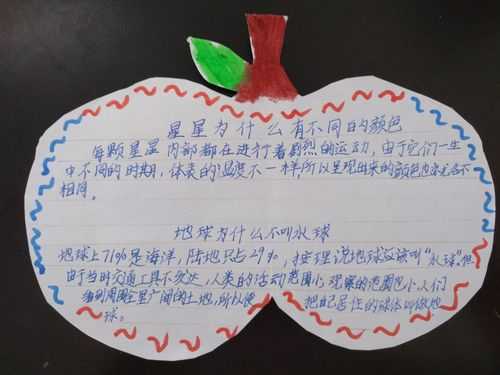 星星为什么有不同的颜色
每颗星星内部都在进行着剧烈的运动，由于它们一生
中不同的时期，体表的温度不一样所以呈现出来的颜色也各不
相同。
地球为什么不叫水球
地球上71%是海洋，陆地只占29%，按理说地球应该叫"水球"。但
由于当时交通工具不发达，人类的活动范围小观察的范围也小人们
看到周围全是广阔的土地，所以便 把自己居住的球体叫做地
球。